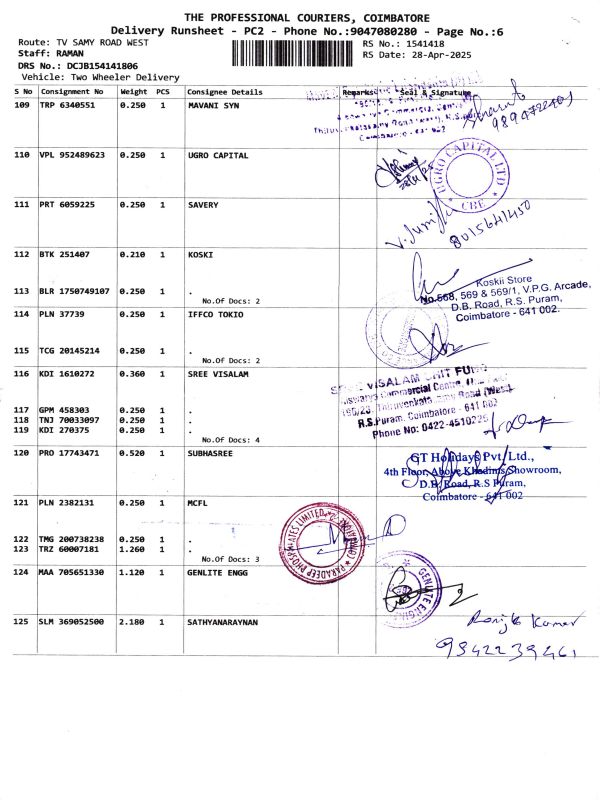 THE PROFESSIONAL COURIERS, COIMBATORE
Delivery Runsheet - PC2 - Phone No.:9047080280 - Page No.:6
Route: TV SAMY ROAD WEST
RS No.: 1541418
Staff: RAMAN
RS Date: 28-Apr-2025
DRS No.: DCJB154141806
Vehicle: Two Wheeler Delivery
S No Consignment No Weight PCS Consignee Details Remarks Seal & Signature
109 TRP 6340551 0.250 1 MAVANI SYN
110 VPL 952489623 0.250 1 UGRO CAPITAL
UGRO CAPITAL LTD
CBE
111 PRT 6059225 0.250 1 SAVERY
8015641450
112 BTK 251407 0.210 1 KOSKI
Koskii Store
No.568, 569 & 569/1, V.P.G. Arcade,
D.B. Road, R.S. Puram,
Coimbatore - 641 002.
113 BLR 1750749107 0.250 1 .
No.Of Docs: 2
114 PLN 37739 0.250 1 IFFCO TOKIO
115 TCG 20145214 0.250 1 .
No.Of Docs: 2
116 KDI 1610272 0.360 1 SREE VISALAM
SREE VISALAM CHIT FUND
Commercial Centre,
Road (West)
R.S.Puram, Coimbatore - 641 002
Phone No: 0422-4510225
117 GPM 458303 0.250 1 .
118 TNJ 70033097 0.250 1 .
119 KDI 270375 0.250 1 .
No.Of Docs: 4
120 PRO 17743471 0.520 1 SUBHASREE
GT Holidays Pvt. Ltd.,
4th Floor, Above Khadims Showroom,
D.B. Road, R.S Puram,
Coimbatore - 641 002
121 PLN 2382131 0.250 1 MCFL
PARADEEP PHOSPHATES LIMITED
122 TMG 200738238 0.250 1 .
123 TRZ 60007181 1.260 1 .
No.Of Docs: 3
124 MAA 705651330 1.120 1 GENLITE ENGG
125 SLM 369052500 2.180 1 SATHYANARAYNAN
9842239461